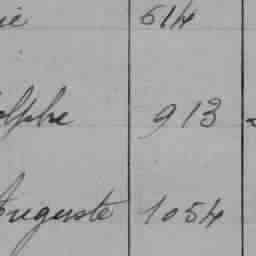 ie 614
olphe 913
Auguste 1054